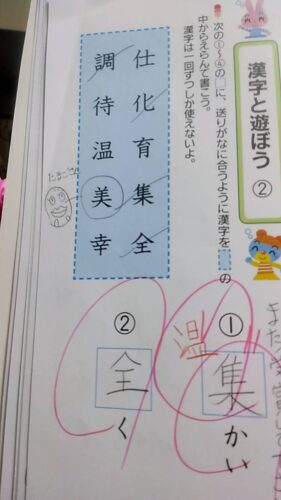 漢字と遊ぼう②
次の①〜④の□に、送りがなに合うように漢字を□の
中からえらんで書こう。
漢字は一回ずつしか使えないよ。
仕 化 育 集 全
調 待 温 美 幸
たまご
①
温
集
かい
②
全
く